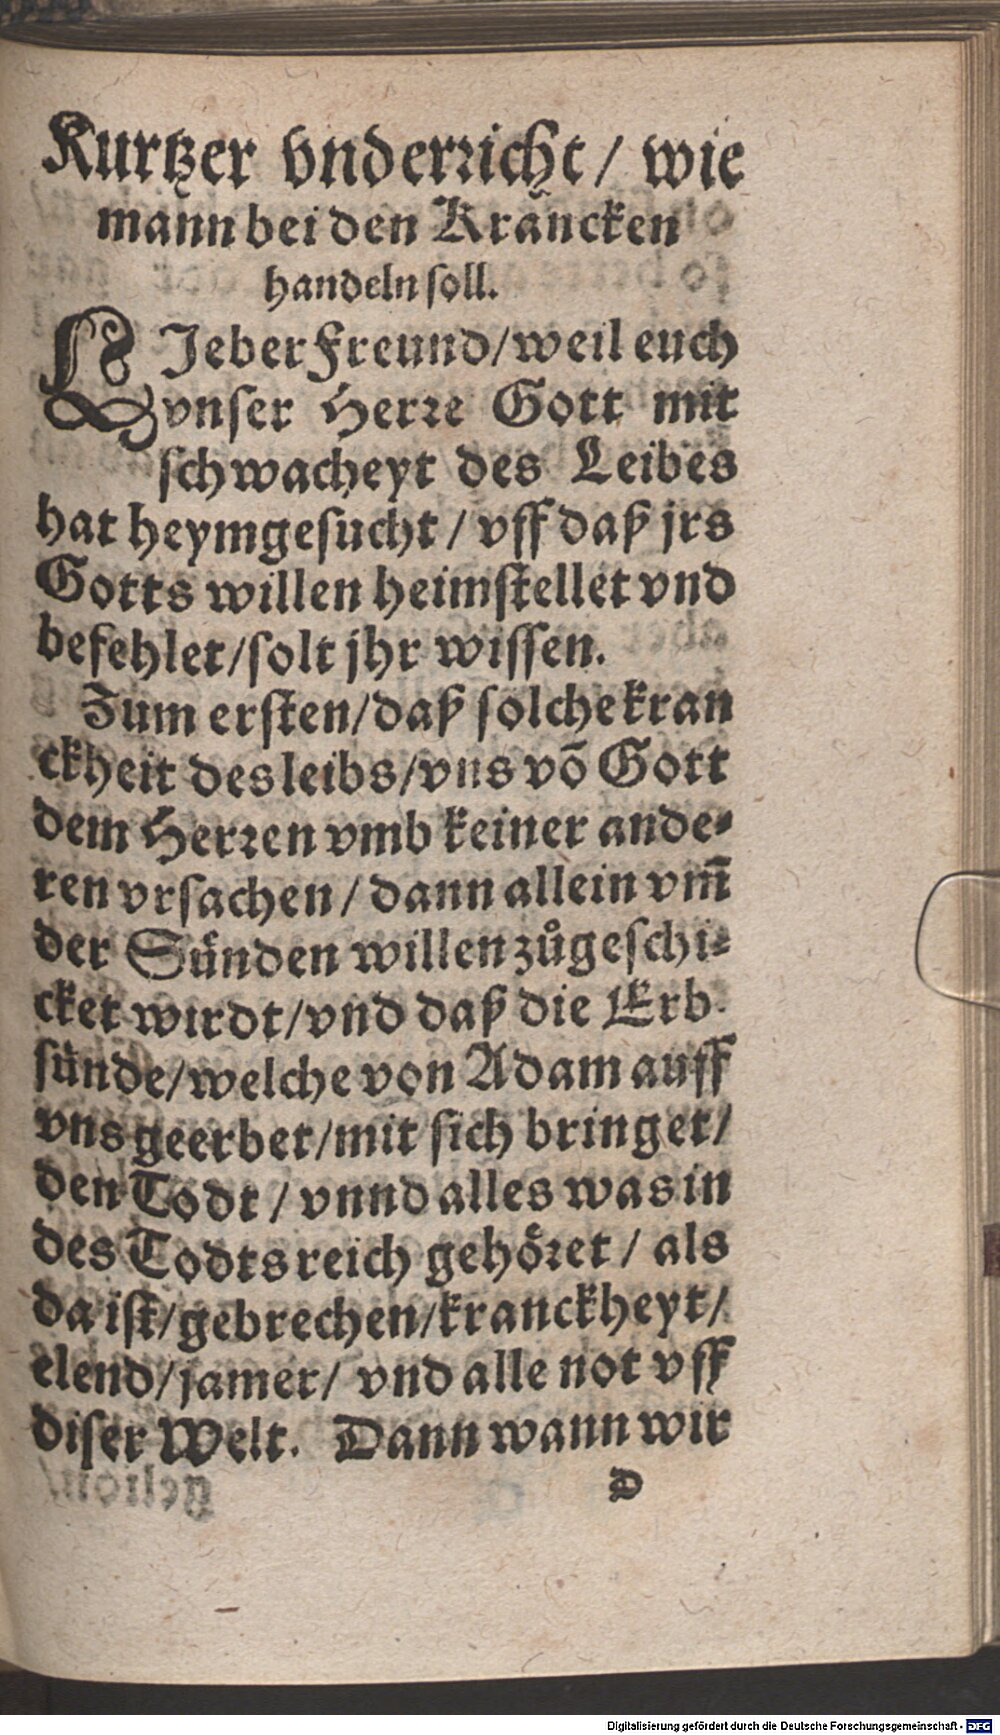 Kurtzer vnderricht / wie
mann bei den Kräncken
handeln soll.
LIeber Freund/weil euch
vnser Herre Gott mit
schwacheyt des Leibes
hat heymgesucht / vff daß jrs
Gotts willen heimstellet vnd
befehlet/solt jhr wissen.
Zum ersten/daß solche kran
ckheit des leibs/vns võ Gott
dem Herren vmb keiner ande-
ren vrsachen / dann allein vm̃
der Sünden willen zůgeschi-
cket wirdt/vnd daß die Erb-
sünde/welche von Adam auff
vns geerbet/mit sich bringet/
den Todt / vnnd alles was in
des Todts reich gehöret / als
da ist/gebrechen/kranckheyt/
elend/jamer/ vnd alle not vff
diser Welt. Dann wann wir
D
Digitalisierung gefördert durch die Deutsche Forschungsgemeinschaft - DFG